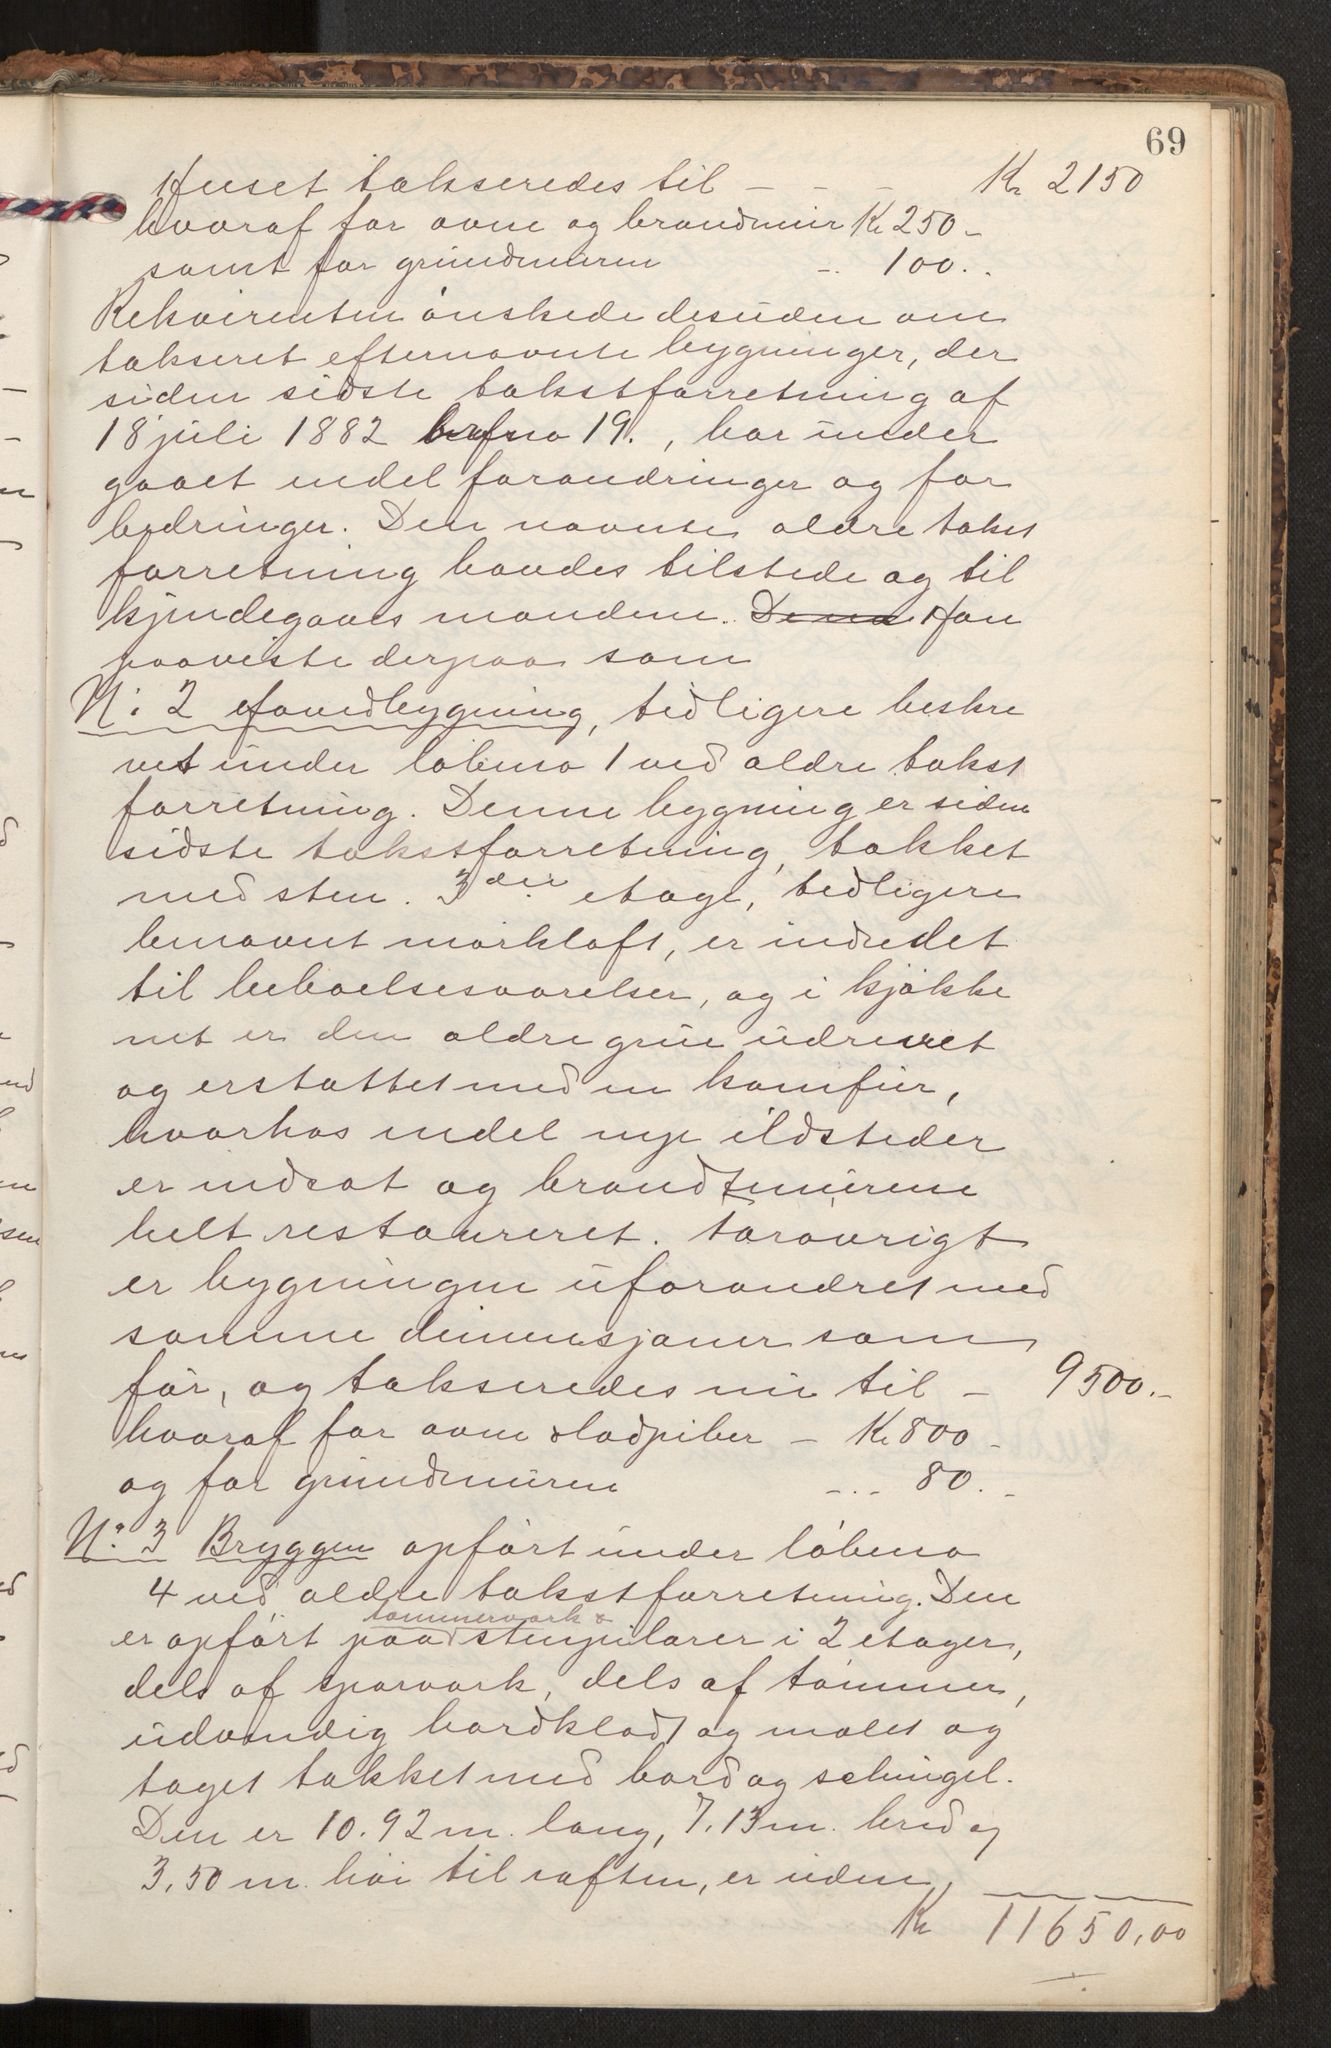 69
Huset takseredes til - - - Kr 2150
hvoraf for ovne og brandmur Kr 250 -
samt for grundmuren -. 100. .
Rekvirenten ønskede desuden om
takseret efternævnte bygninger, der
siden sidste takstforretning af
18 juli 1882 brfno 19., har under
gaaet endel forandringer og for
bedringer. Den nævnte ældre takst
forretning havdes tilstede og til
kjendegaves mændene. Dena Han
paaviste derpaa som
No. 2 Hovedbygning, tidligere beskre
vet under løbeno 1 ved ældre takst
forretning. Denne bygning er siden
sidste takstforretning, takket
med sten. 3die etage, tidligere
benævnt mørkloft, er indredet
til beboelsesværelser, og i kjøkke
net er den ældre grue udrevet
og erstattet med en komfur,
hvorhos endel nye ildsteder
er indsat og brandmurene
helt restaureret. forøvrigt
er bygningen uforandret med
samme dimensjoner som
før, og takseredes nu til - 9500.-
hvoraf for ovne & ladpiber - Kr 800 -
og for grundmuren -.. 80. -
No. 3 Bryggen opført under løbeno
4 ved ældre takstforretning. Den
tømmerværk &
er opført paa stenpilarer i 2 etager,
dels af sparværk, dels af tømmer,
udvendig bordklædt og malet og
taget tækket med bord og schingel.
Den er 10.92 m. lang, 7.13 m. bred og
3.50 m. høi til raften, er uden
Kr 11650,00